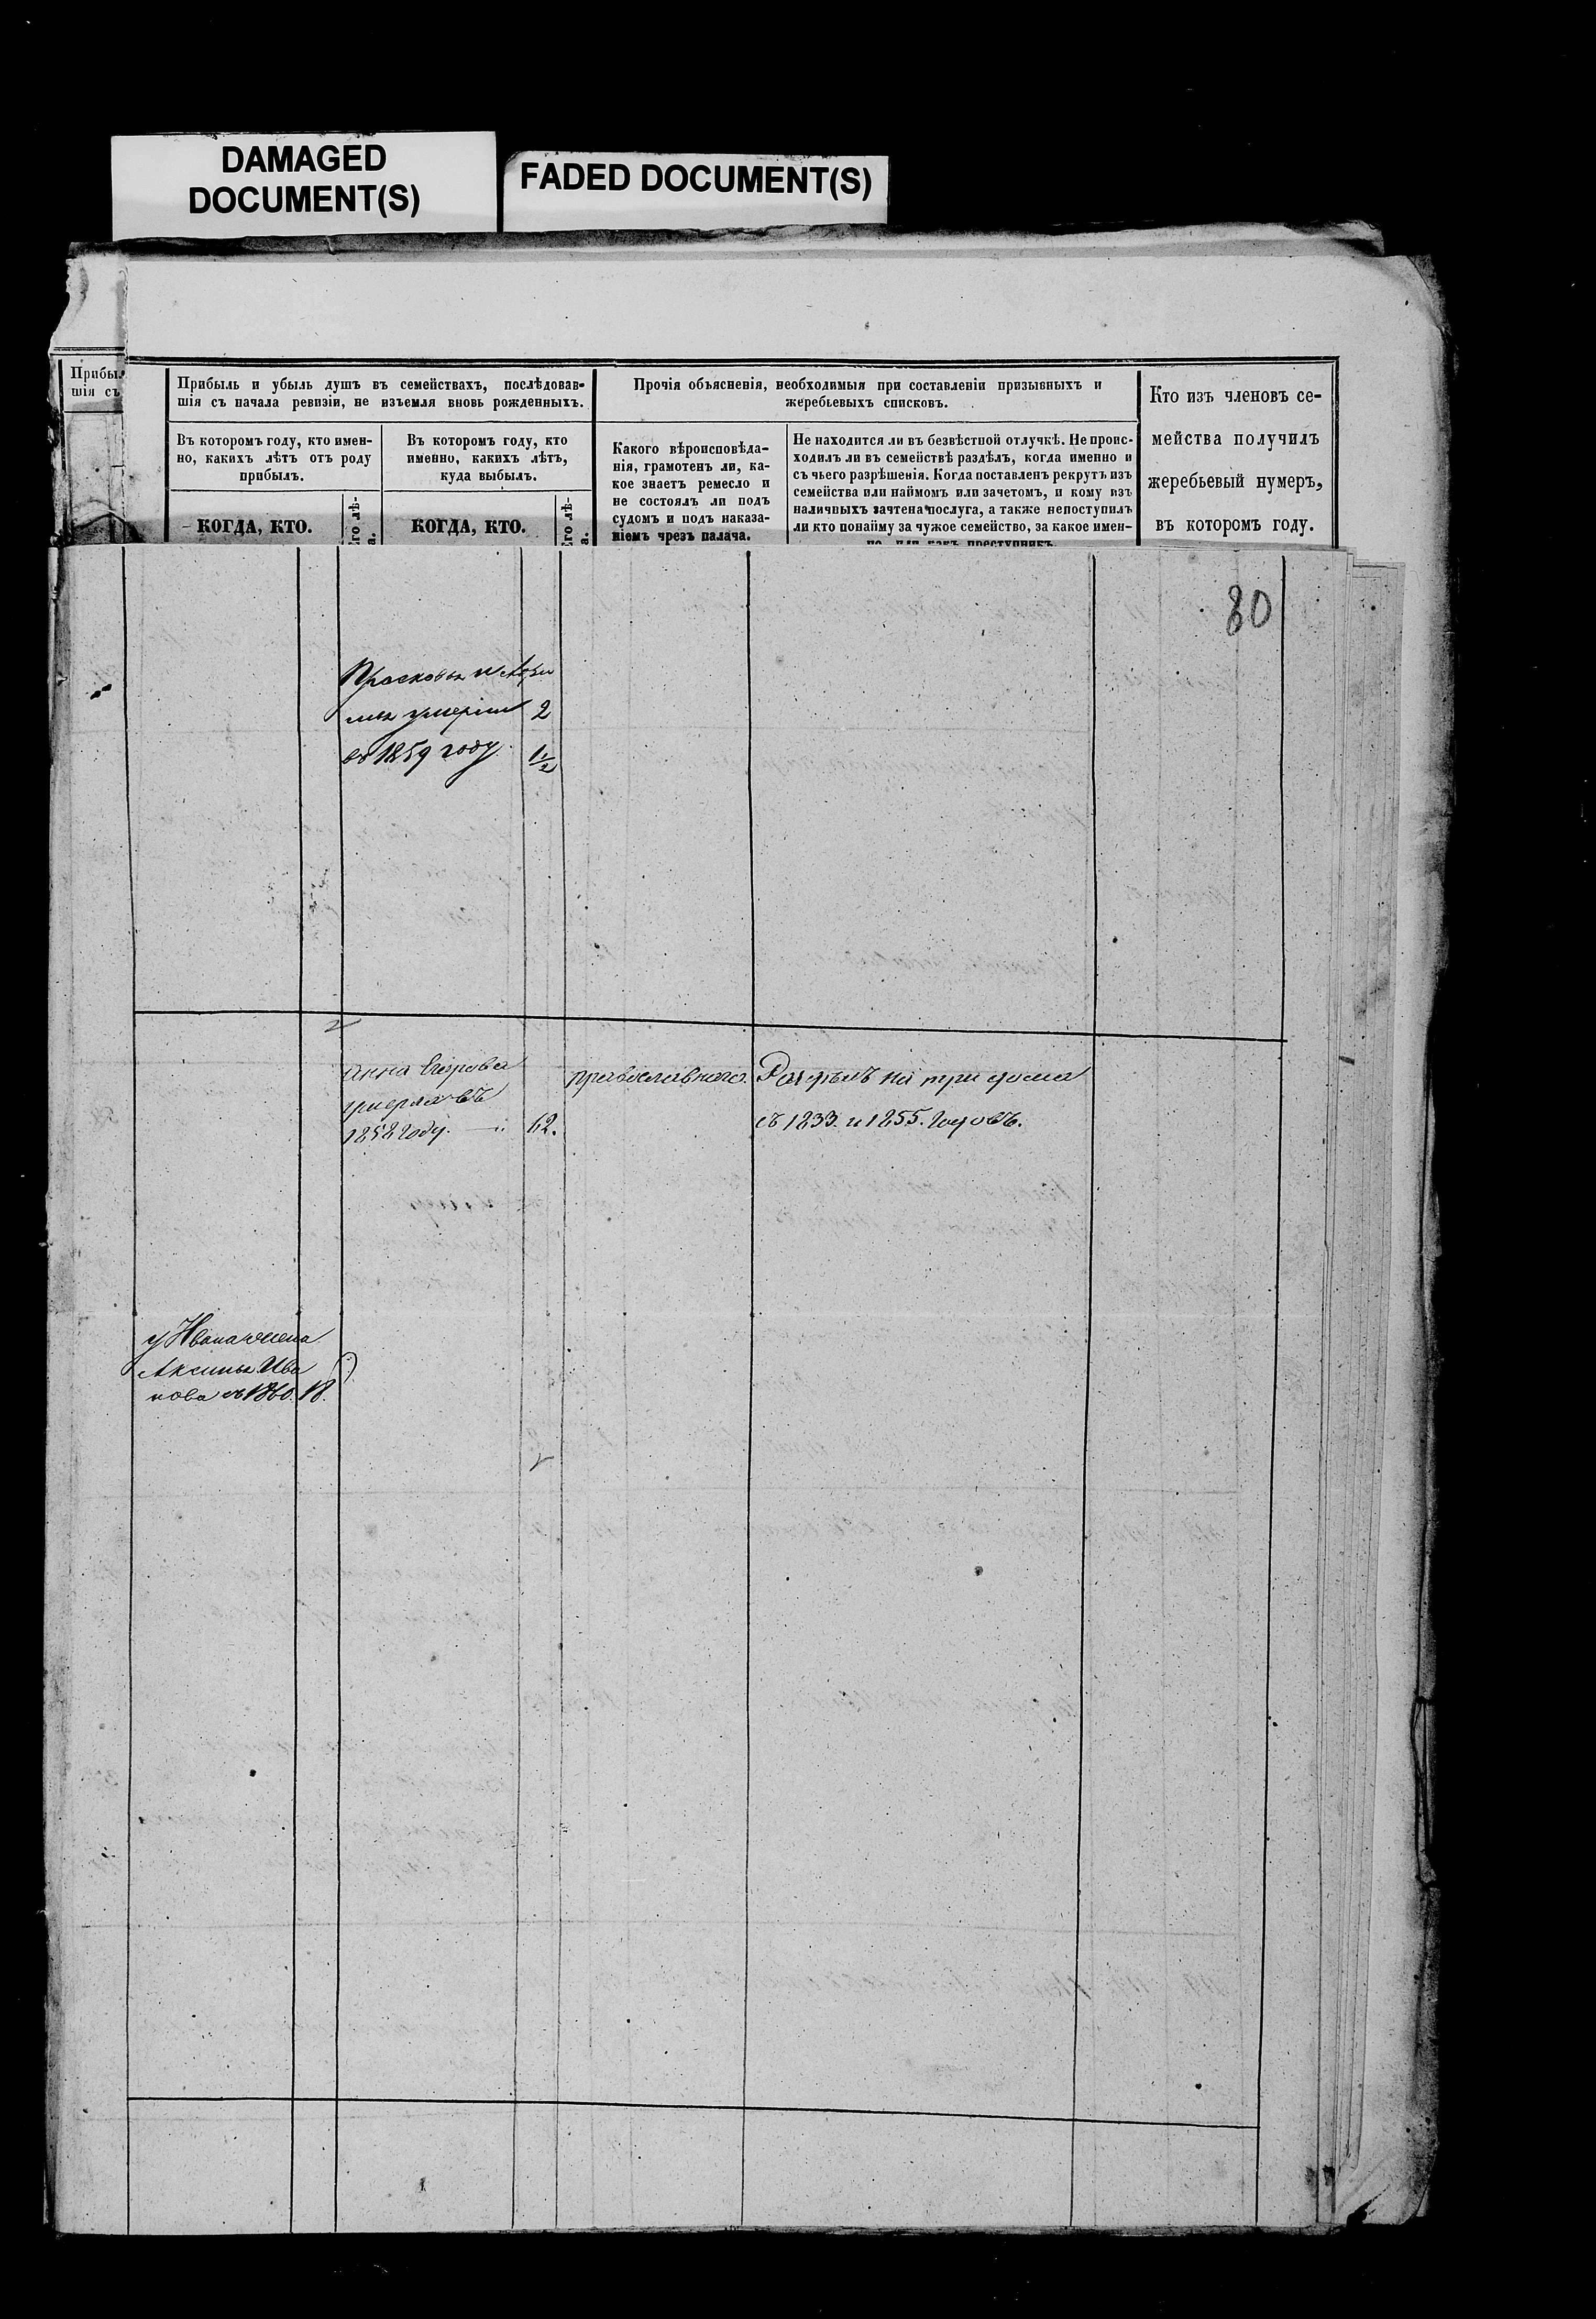 DAMAGED
DOCUMENT(S)
FADED DOCUMENT(S)
Прибыл
шія съ
Прибыль и убыль душъ въ семействахъ, послѣдовав-
шія съ начала ревизіи, не изъемля вновь рожденныхъ.
Въ которомъ году, кто имен-
но, какихъ лѣтъ отъ роду
прибылъ.
КОГДА, КТО.
Его лѣ-
а.
Въ которомъ году, кто
именно, какихъ лѣтъ,
куда выбылъ.
КОГДА, КТО.
Его лѣ-
а.
Прочія объясненія, необходимыя при составленіи призывныхъ и
жеребьевыхъ списковъ.
Какого вѣроисповѣда-
нія, грамотенъ ли, ка-
кое знаетъ ремесло и
не состоялъ ли подъ
судомъ и подъ наказа-
ніемъ чрезъ палача.
Не находится ли въ безвѣстной отлучкѣ. Не проис-
ходилъ ли въ семействѣ раздѣлъ, когда именно и
съ чьего разрѣшенія. Когда поставленъ рекрутъ изъ
семейства или наймомъ или зачетомъ, и кому изъ
наличныхъ зачтена послуга, а также непоступилъ
ли кто понайму за чужое семейство, за какое имен-
но, или какъ преступникъ.
Кто изъ членовъ се-
мейства получилъ
жеребьевый нумеръ,
въ которомъ году.
80
Прасковья и
умерли 2
въ 1859 году. 1 1/2
Анна Егорова
умерла въ
1858 году. 62.
православнаго.
Раздѣлъ на три дома
съ 1833. и 1855. годовъ.
у Ивана жена
Аксинья Ива
нова съ 1860. 18.